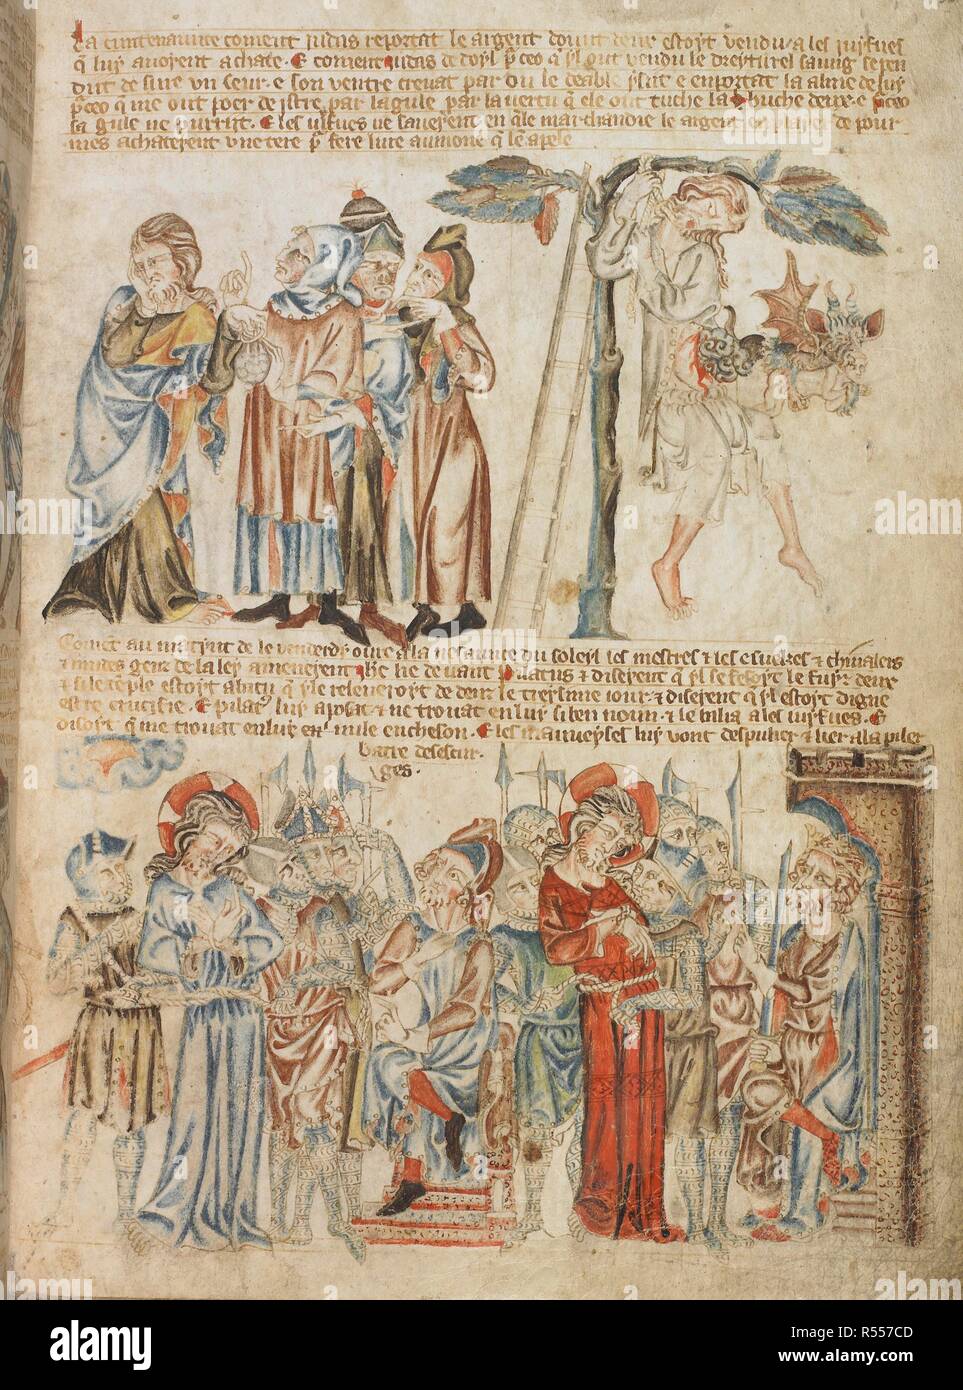 La cuntenaunce coment iudas reportat le argent dount deux estoyt vendu a les iuyfues
q luy auoyent achate. E coment iudas de doyl p ceo q yl out vendu le dreyturel sauuig se pen
dit de sure vn seur. e son ventre creuat par ou le deable ysit e enportat la alme de luy
p ceo q ne out poer de istre par la gule par la vertu q ele out tuche la buche deux. e p ceo
sa gule ne purrit. E les iuyfues ne sauerent en q le marchandie le argent de pour
mes achaterent vne tere p fere liue aumone q le apele
Coment au matyn de le venderdy oue a la nesaunce du soleyl les mestres e les esueskes e chiualers
e mutes genz de la ley amenerent ihc lie deuant pilatus e diserent q yl se fesoyt le fuyz deux
e si le temple estoyt abatu q yl le releueroyt dedenz le treysime iour e diserent q yl estoyt digne
estre crucifie. E pilat luy aposat e ne trouat en luy si ben noun. e le bailia a les iuyfues. E
disoyt q ne trouat en luy nule encheson. E les mauueyses luy vont despulier e lier a la piler
batre de sescur
ges.
alamy
Image ID: R557CD
www.alamy.com